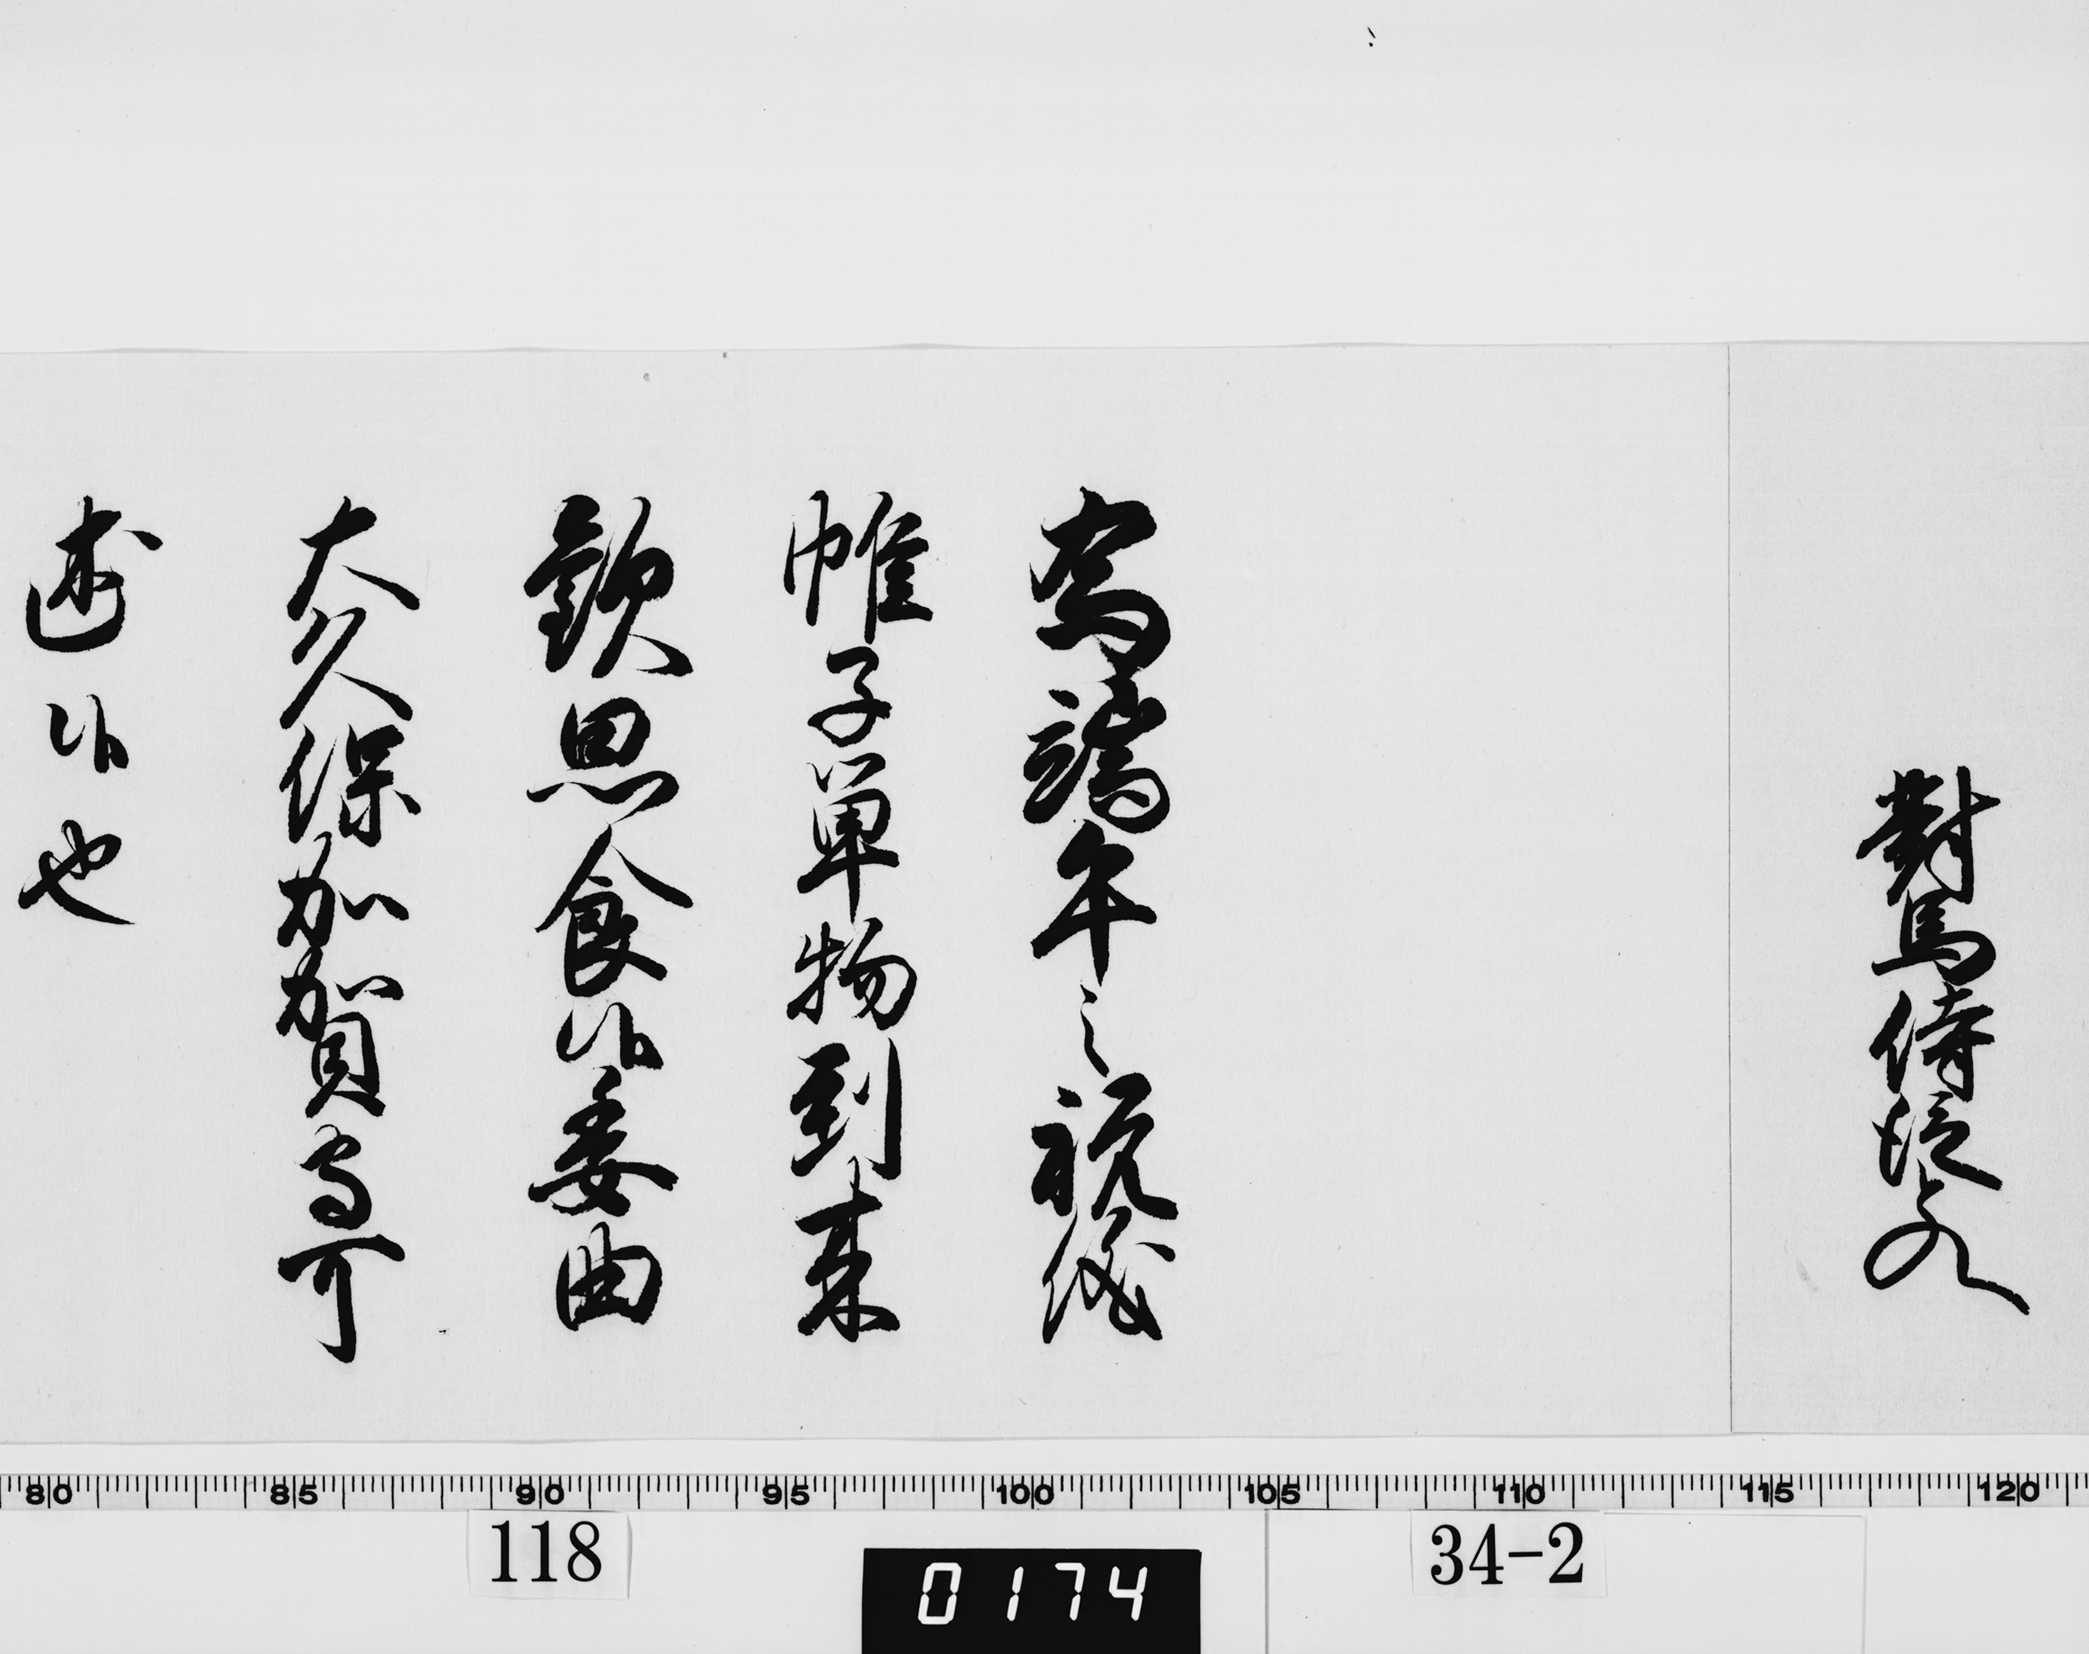 對馬侍従とのへ
為端午之祝儀
帷子単物到来
歓思食候委曲
大久保加賀守可
述候也
80 85 90 95 100 105 110 115 120
118
0174
34-2